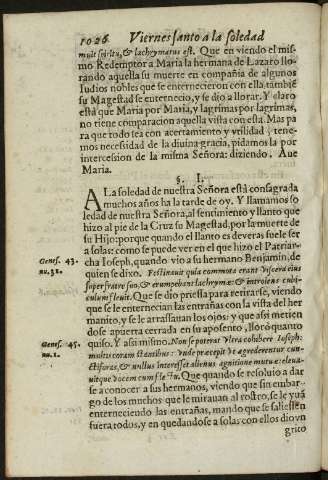 1026 Viernes santo a la soledad
muit spiritu, & lachrymatus est. Que en viendo el mis-
mo Redemptor a Maria la hermana de Lazaro llo-
rando aquella su muerte en compañia de algunos
Iudios nobles que se enternecieron con ella, tambiē
su Magestad se enternecio, y se dio a llorar. Y claro
està que Maria por Maria, y lagrimas por lagrimas,
no tiene comparacion aquella vista con esta. Mas pa
ra que todo sea con acertamiento y vtilidad, tene-
mos necesidad de la diuina gracia, pidamos la por
intercession de la misma Señora: diziendo, Aue
Maria.
§. I.
A La soledad de nuestra Señora està consagrada
muchos años ha la tarde de oy. Y llamamos so
ledad de nuestra Señora, al sentimiento y llanto que
hizo al pie de la Cruz su Magestad, por la muerte de
su Hijo: porque quando el llanto es deueras suele ser
a solas: como se puede ver en el que hizo el Patriar-
Genes. 43.
nu. 31.
cha Ioseph, quando vio a su hermano Benjamin, de
quien se dixo. Festinauit quia commota erant viscera eius
super fratre suo, & erumpebant lachrymæ: & introiens cubi-
culum fleuit. Que se dio priessa para retirarse, viendo
que se le enternecian las entrañas con la vista del her
manito, y se le arrassauan los ojos: y que assi metien
dose apuerta cerrada en su aposento, llorò quanto
Genes. 45.
nu. 1.
quiso. Y assi mismo. Non se poterat vltra cohibere Ioseph:
multis coram stantibus: vnde præcepit vt egrederentur cun-
cti foras, & nullus interesset alienus agnitioni mutuæ: eleua-
uitque vocem cum fletu. Que quando se resoluio a dar
se a conocer a sus hermanos, viendo que sin embar-
go de los muchos que le mirauan al rostro, se le yuā
enterneciendo las entrañas, mando que se saliessen
fuera todos, y en quedandose a solas con ellos dio vn
grito